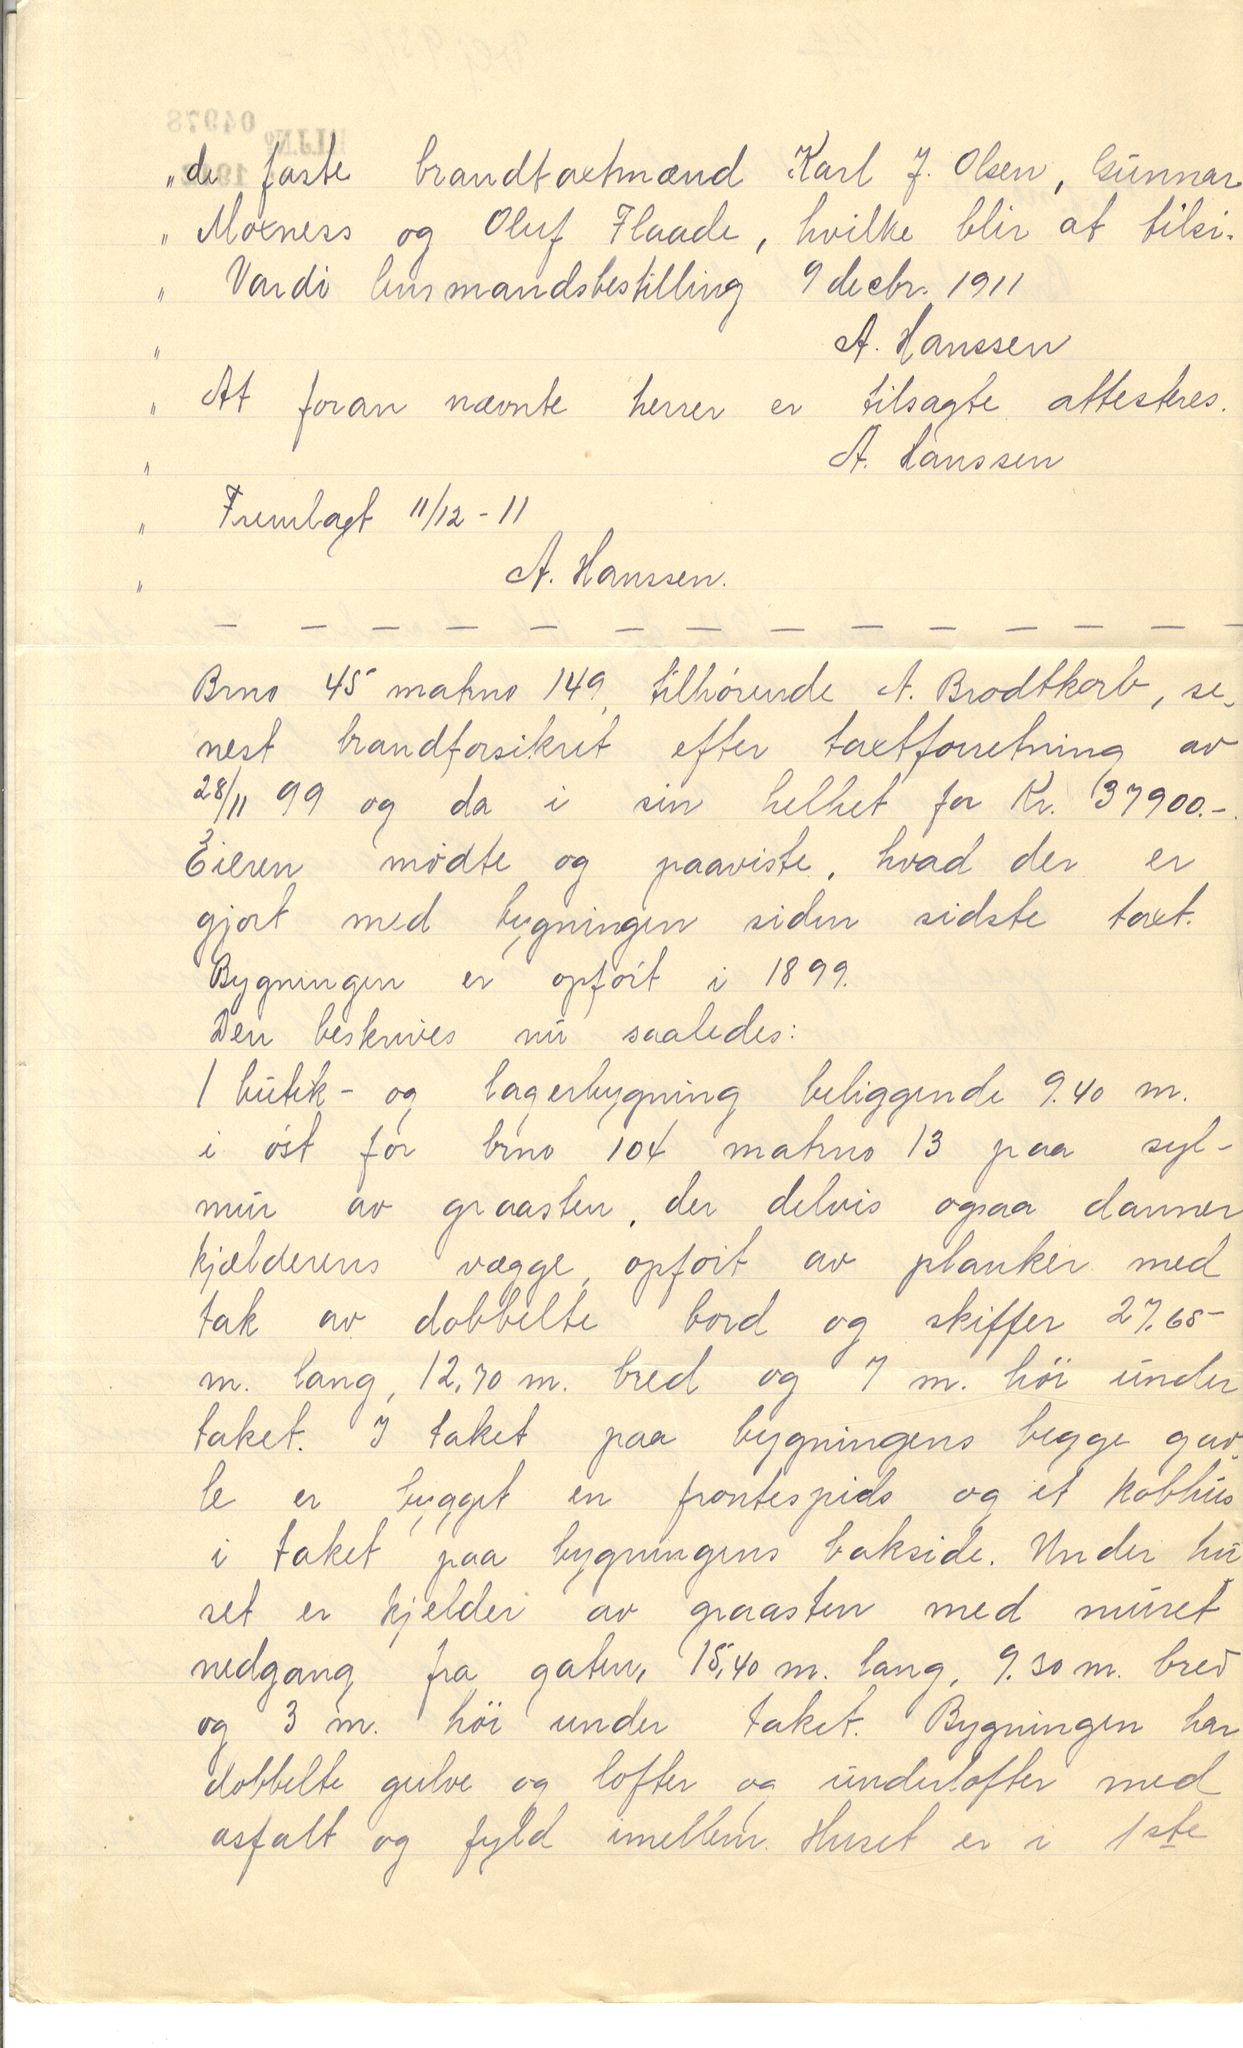 „ de faste brandtaxtmænd Karl J. Olsen, Gunnar
„ Moxness og Oluf Flaade, hvilke blir at tilsi.
„ Vardø lensmandsbestilling 9 decbr. 1911
„ A. Hanssen
„ At foran nævnte herrer er tilsagte attesteres.
„ A. Hanssen
„ Fremlagt 11/12 - 11
„ A. Hanssen.
Brno 45 matrno 149, tilhørende A. Brodtkorb, se-
nest brandforsikret efter taxtforretning av
28/11 99 og da i sin helhet for Kr. 37900.-
Eieren mødte og paaviste, hvad der er
gjort med bygningen siden sidste taxt.
Bygningen er opført i 1899.
Den beskrives nu saaledes:
1 butik- og lagerbygning beliggende 9.40 m.
i øst for brno 104 matrno 13 paa syl-
mur av graasten, der delvis ogsaa danner
kjælderens vægge, opført av planker med
tak av dobbelte bord og skiffer 27.65
m. lang, 12,70 m. bred og 7 m. høi under
taket. I taket paa bygningens begge gav-
le er bygget en frontespids og et kobhus
i taket paa bygningens bakside. Under hu
set er kjelder av graasten med muret
nedgang fra gaten, 15,40 m. lang, 9.30 m. bred
og 3 m. høi under taket. Bygningen har
dobbelte gulve og lofter og underlofter med
asfalt og fyld imellem. Huset er i 1ste